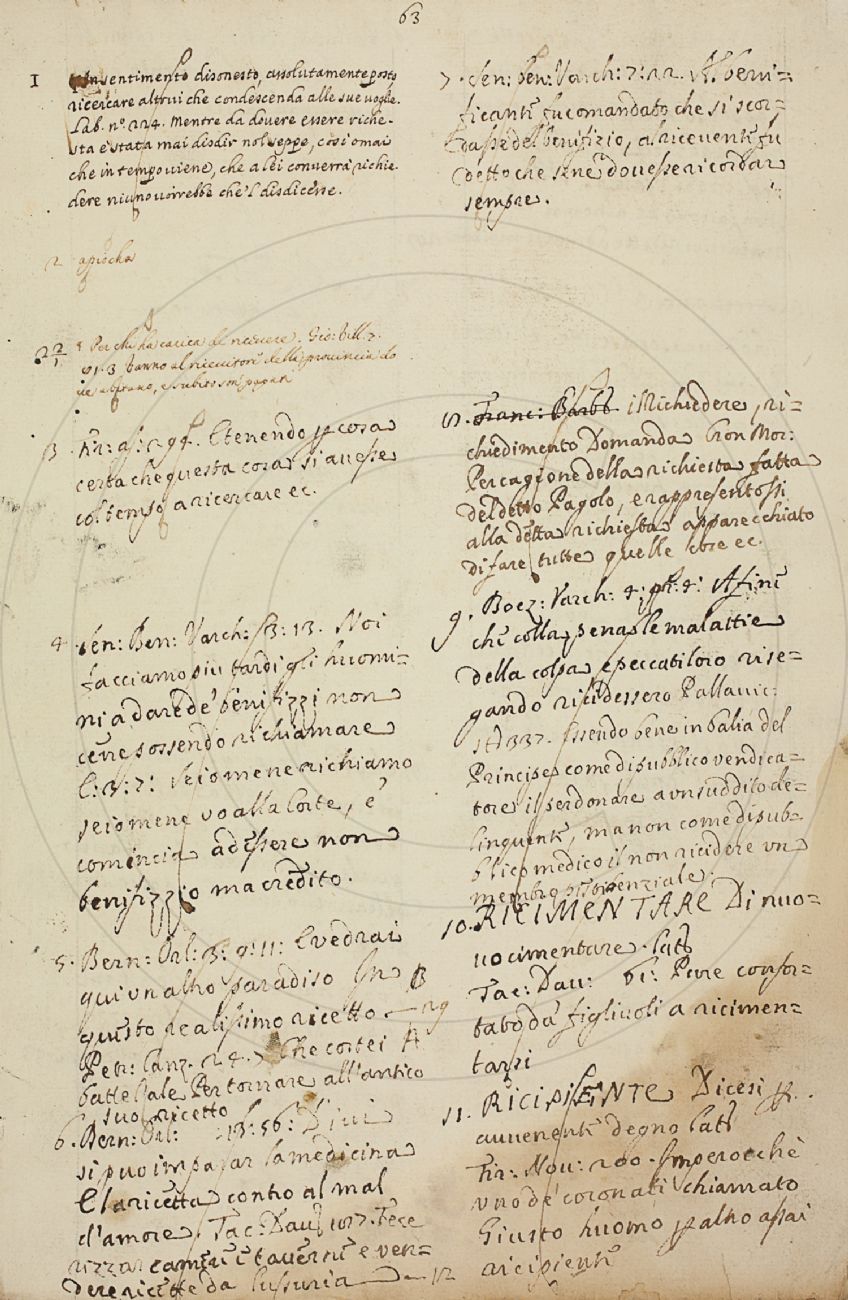 63
1
Un sentimento disonesto, assolutamente posto
ricercare altrui che condescenda alle sue voglie.
Lab. nº. 224. Mentre da dovere essere riche-
sta è stata mai disdir nol seppe, così omai
che in tempo viene, che a lei converrà richie
dere niuno vorrebbe che 'l disdicesse.
2 apocha
22/1 Perche ha carica di ricevere. Gio: Vill. 7.
91. 3 vanno al ricevitore della provincia do
ve abitano, e subito son pagati
3. Fir: as: 294. E tenendo p cosa
certa che questa cosa si avesse
col tempo a ricercare ec.
4 Sen: Ben: Varch: 3: 13. Noi
facciamo piu tardi gli huomi=
ni a dare de' benifizzi non
ce ne possendo richiamare
l: 3: 7: Se io me ne richiamo
se io me ne vo alla Corte, e'
comincia ad essere non
benifizzio ma credito.
5. Bern: Orl: 3: 9: 11: E vedrai
qui un altro paradiso In B
questo realissimo ricetto — 29
Petr: Canz. 24. 7 Che costei A
batte l'ale Per tornare all'antico
suo ricetto
6. Bern: Orl: 13: 56: Di cui
si puo imparar la medicina
E la ricetta contro al mal
d'amore. Tac: Dav: 107. Fece
rizzar camere e taverne e ven=
dere ricette da lussuria — 12
7. Sen: ben: Varch: 7: 22. A' beni=
ficanti fu comandato che si scor=
dasse del benifizio, a' riceventi fu
detto che se ne dovesse ricordar
sempre.
8. Franc: Barb il Richiedere, ri=
chiedimento Domanda Cron Mor:
Per cagione della richiesta fatta
del detto Pagolo, e rappresentossi
alla detta richiesta apparecchiato
di fare tutte quelle cose ec.
9. Boez: Varch: 4: 4: Afine
che colla pena le malattie
della colpa e peccati loro rise=
gando ricidessero Pallavic:
337. Essendo bene in balia del
Principe come di pubblico vendica=
tore il perdonare a un suddito de=
linquente, ma non come di pub=
blico medico il non ricidere un
membro pistilenziale.
10. RICIMENTARE Di nuo=
vo cimentare. Lat
Tac: Dav: 61: Pure confor=
tato da' figliuoli a ricimen=
tarsi
11. RICIPIENTE Dicesi p
avvenente degno Lat
Fir: Nov: 200. Imperocchè
uno de' coronati chiamato
Giusto huomo p altro assai
ricipiente